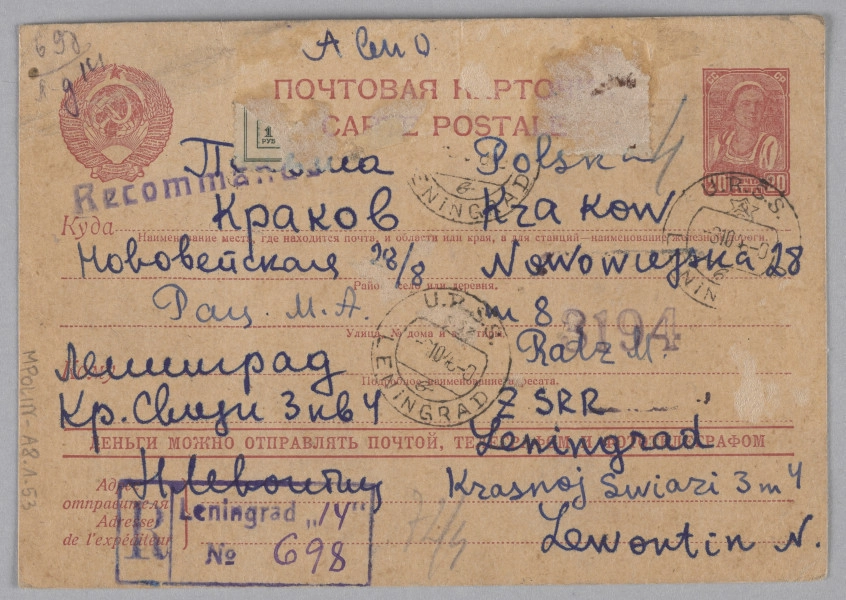 698
A Cen O
ПОЧТОВАЯ КАРТО
CARTE POSTALE
1
РУБ
20
Recomman
Polska
Куда Краков Krakow
Наименование места, где находится почта, и области или края, а для станций—наименование железной дороги.
Нововейская 28/8 Nowowiejska 28
Район, село или деревня.
Рац. М. А. m 8
Улица, № дома и
3194
Ratz M.
Кому Ленинград
Подробное наименование адресата.
Кр. Связи 3 кв 4 Z SRR
Leningrad
ДЕНЬГИ МОЖНО ОТПРАВЛЯТЬ ПОЧТОЙ, ТЕЛЕГРАФОМ И ФОТОТЕЛЕГРАФОМ
Н Левонтин Krasnoj Swiazi 3 m 4
отправителя
Adresse
de l'expéditeur
R Leningrad „14"
№ 698
Lewontin N.
U.R.S.S.
LENINGRAD
U.R.S.S.
LENIN
LENINGRAD
MPOLIN-A8.1.53